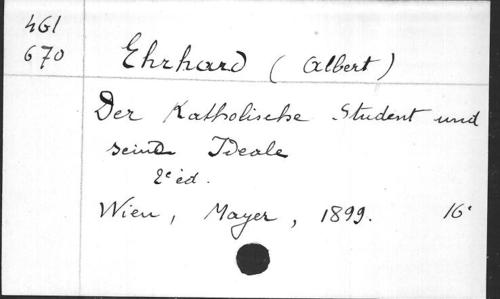 461
670
Ehrhard (Albert)
Der Katholische Student und
seine Ideale
2e éd.
Wien, Mayer, 1899. 16°